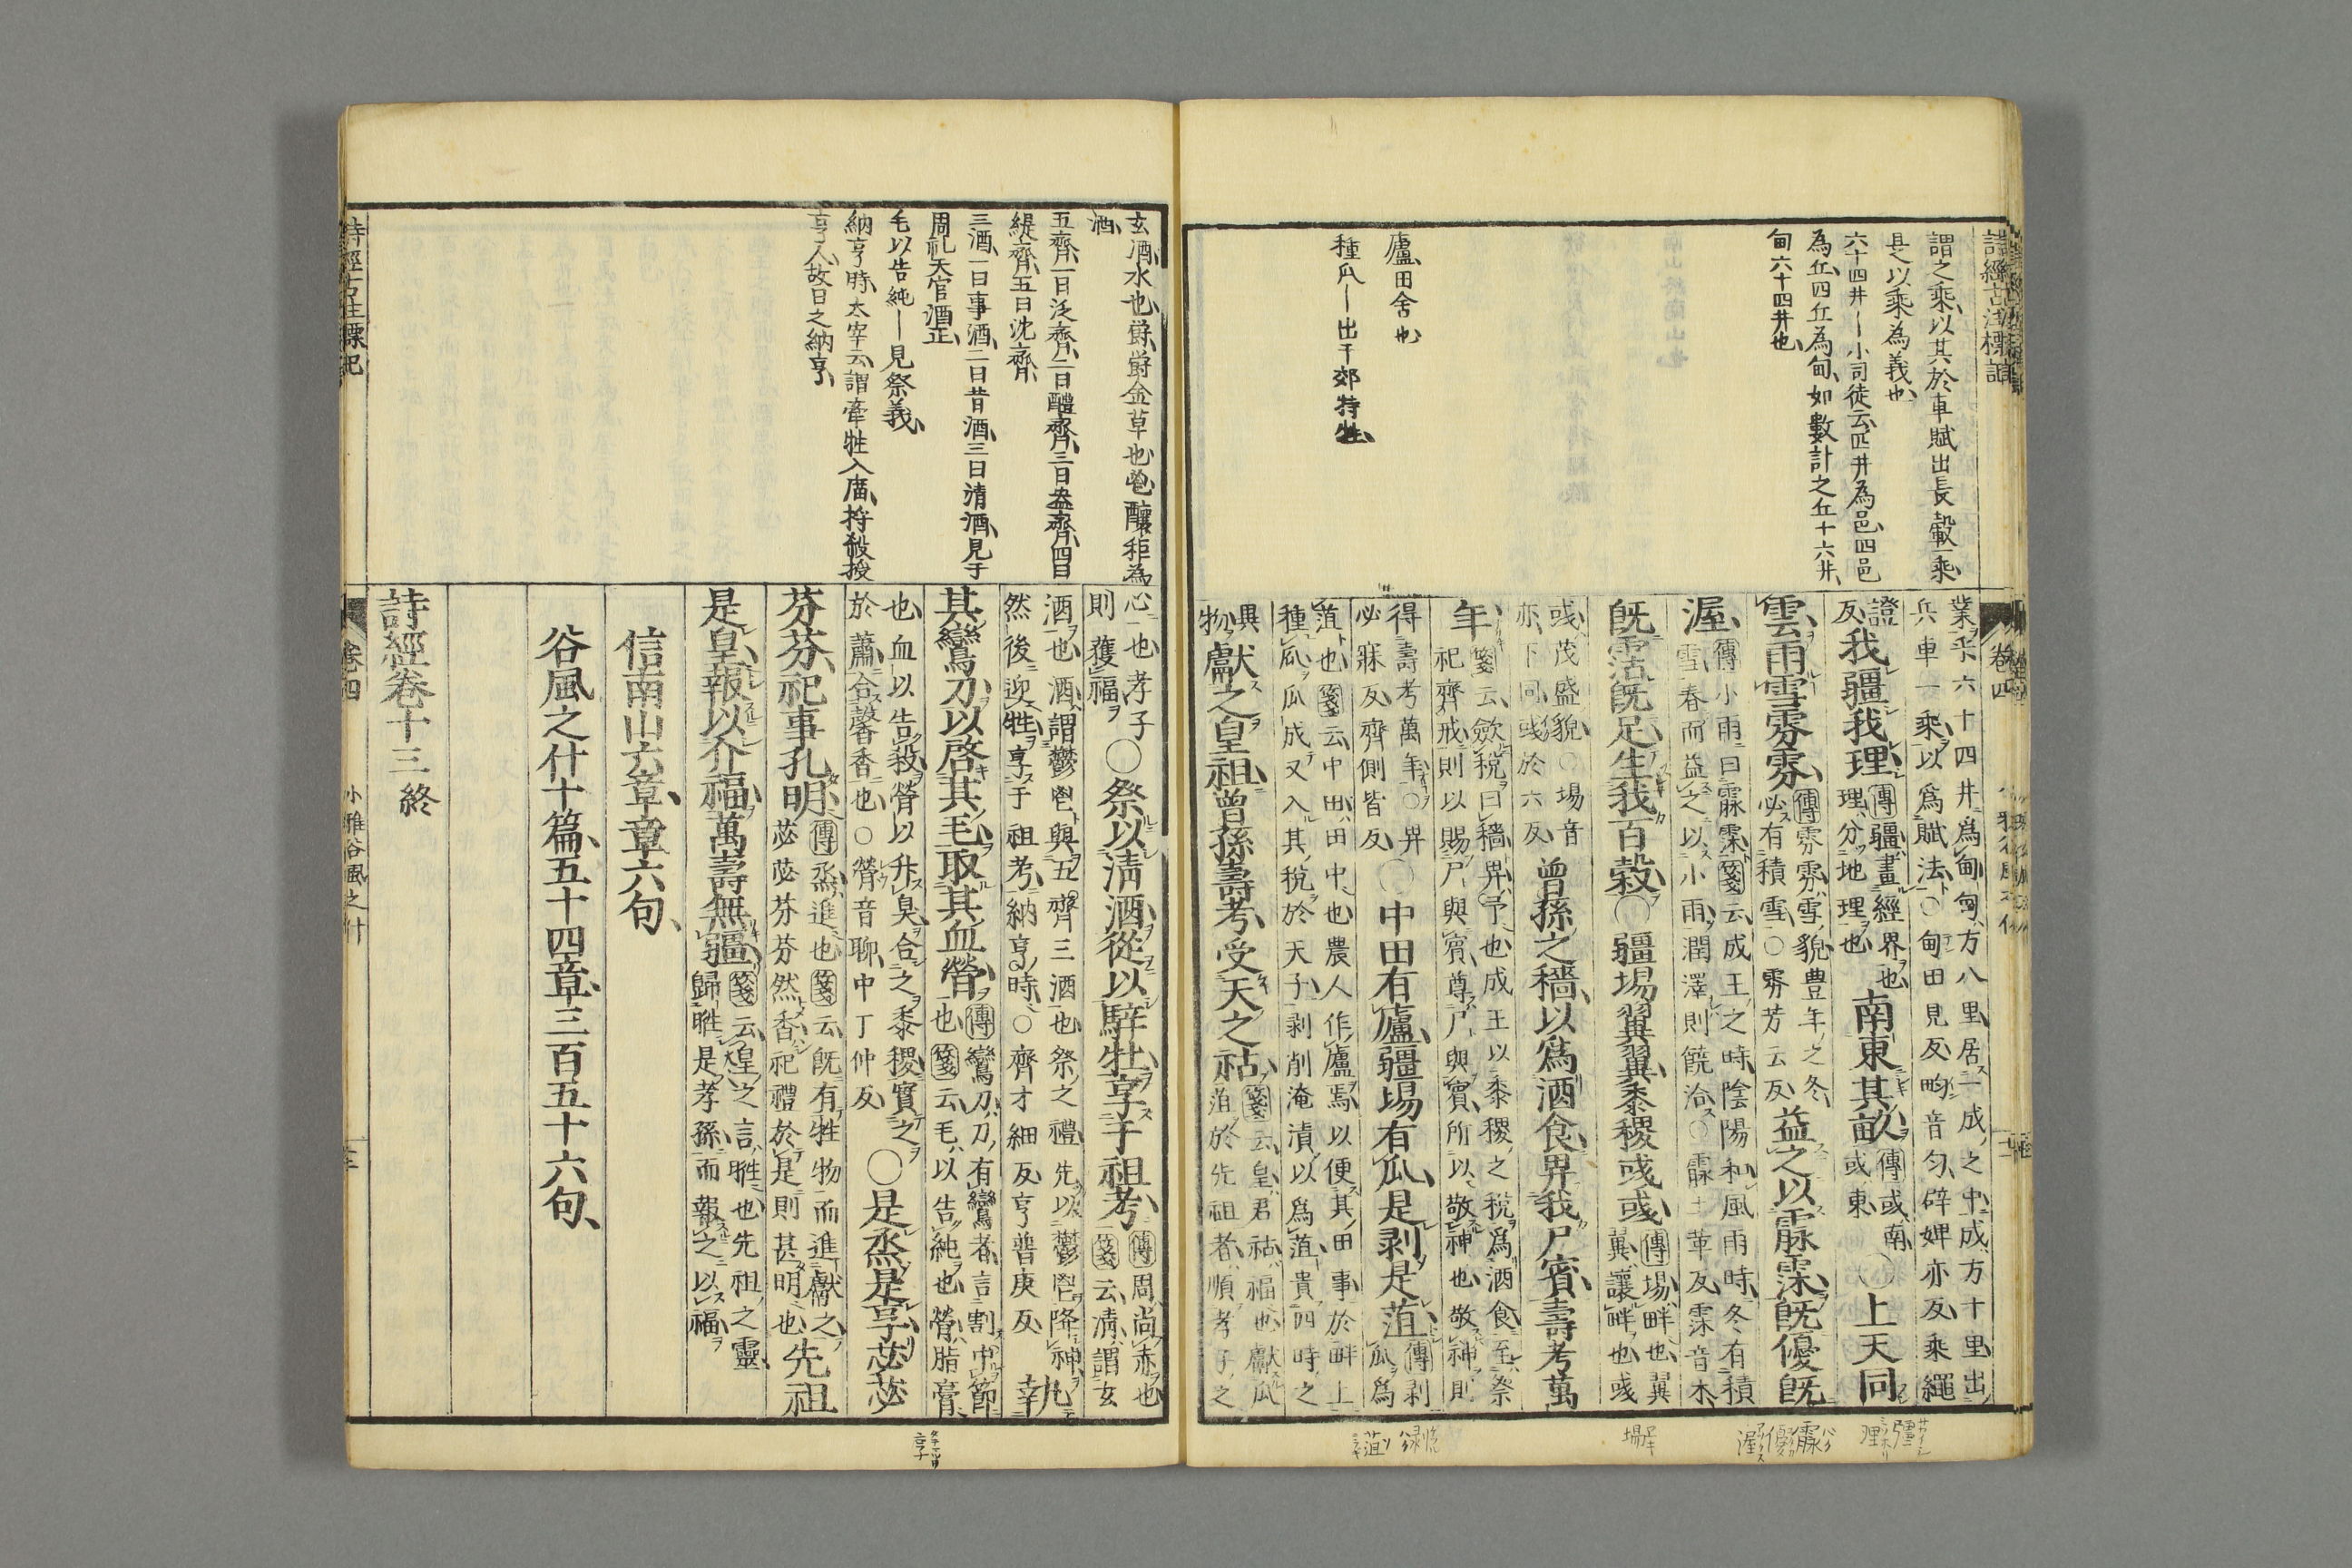 詩經古注標記
謂之乘以其於車賦出長轂一乘
是以乘為義也
六十四井｜小司徒云四井為邑四邑
為丘四丘為甸如數計之丘十六井
甸六十四井也
廬田舍也
種瓜｜出于郊特牲
卷四
業乘六十四井爲甸甸方八里居一成之中成方十里出
兵車一乘以爲賦法○甸田見反畇音匀辟婢亦反乘繩
證
反
我疆我理
傳疆畫經界也
理分地理也
南東其畝
傳或南
或東
○上天同
雲雨雪雰雰
傳雰雰雪貌豊年之冬
必有積雪○雰芳云反
益之以霢霂既優既
渥
傳小雨曰霢霂箋云成王之時陰陽和風雨時冬有積
雪春而益之以小雨潤澤則饒洽○霢亡革反霂音木
既霑既足生我百穀○疆埸翼翼黍稷彧彧
傳埸畔也翼
翼讓畔也彧
彧茂盛貌○埸音
亦下同彧於六反
曾孫之穡以爲酒食畀我尸賓壽考萬
年
箋云斂稅曰穡畀予也成王以黍稷之稅爲酒食至祭
祀齊戒則以賜尸與賓尊尸與賓所以敬神也敬神則
得壽考萬年○畀
必寐反齊側皆反
○中田有廬疆埸有瓜是剥是菹
傳剥
瓜爲
菹也箋云中田田中也農人作廬焉以便其田事於畔上
種瓜瓜成又入其稅於天子剥削淹漬以爲菹貴四時之
異
物
獻之皇祖曾孫壽考受天之祜
箋云皇君祜福也獻瓜
菹於先祖者順孝子之
玄酒水也鬱鬱金草也鬯釀秬為
酒
五齊一曰泛齊二曰醴齊三曰盎齊四曰
緹齊五曰沈齊
三酒一曰事酒二曰昔酒三曰清酒見于
周礼天官酒正
毛以告純｜見祭義
納亨時太宰云謂牽牲入廟將殺授
亨人故曰之納亨
心也孝子
則獲福
○祭以淸酒從以騂牡享于祖考
傳周尚赤也
箋云淸謂玄
酒也酒謂鬱鬯與五齊三酒也祭之禮先以鬱鬯降神
然後迎牲亨于祖考納亨時○齊才細反亨普庚反
執
其鸞刀以啓其毛取其血膋
傳鸞刀刀有鸞者言割中節
也箋云毛以告純也膋脂膏
也血以告殺膋以升臭合之黍稷實之
於蕭合馨香也○膋音聊中丁仲反
○是烝是享苾苾
芬芬祀事孔明
傳烝進也箋云既有牲物而進獻之
苾苾芬芬然香祀禮於是則甚明也
先祖
是皇報以介福萬壽無疆
箋云皇之言暀也先祖之靈
歸暀是孝孫而報之以福
信南山六章章六句
谷風之什十篇五十四章三百五十六句
詩經卷十三終
詩經古注標記
卷四
小雅谷風之什